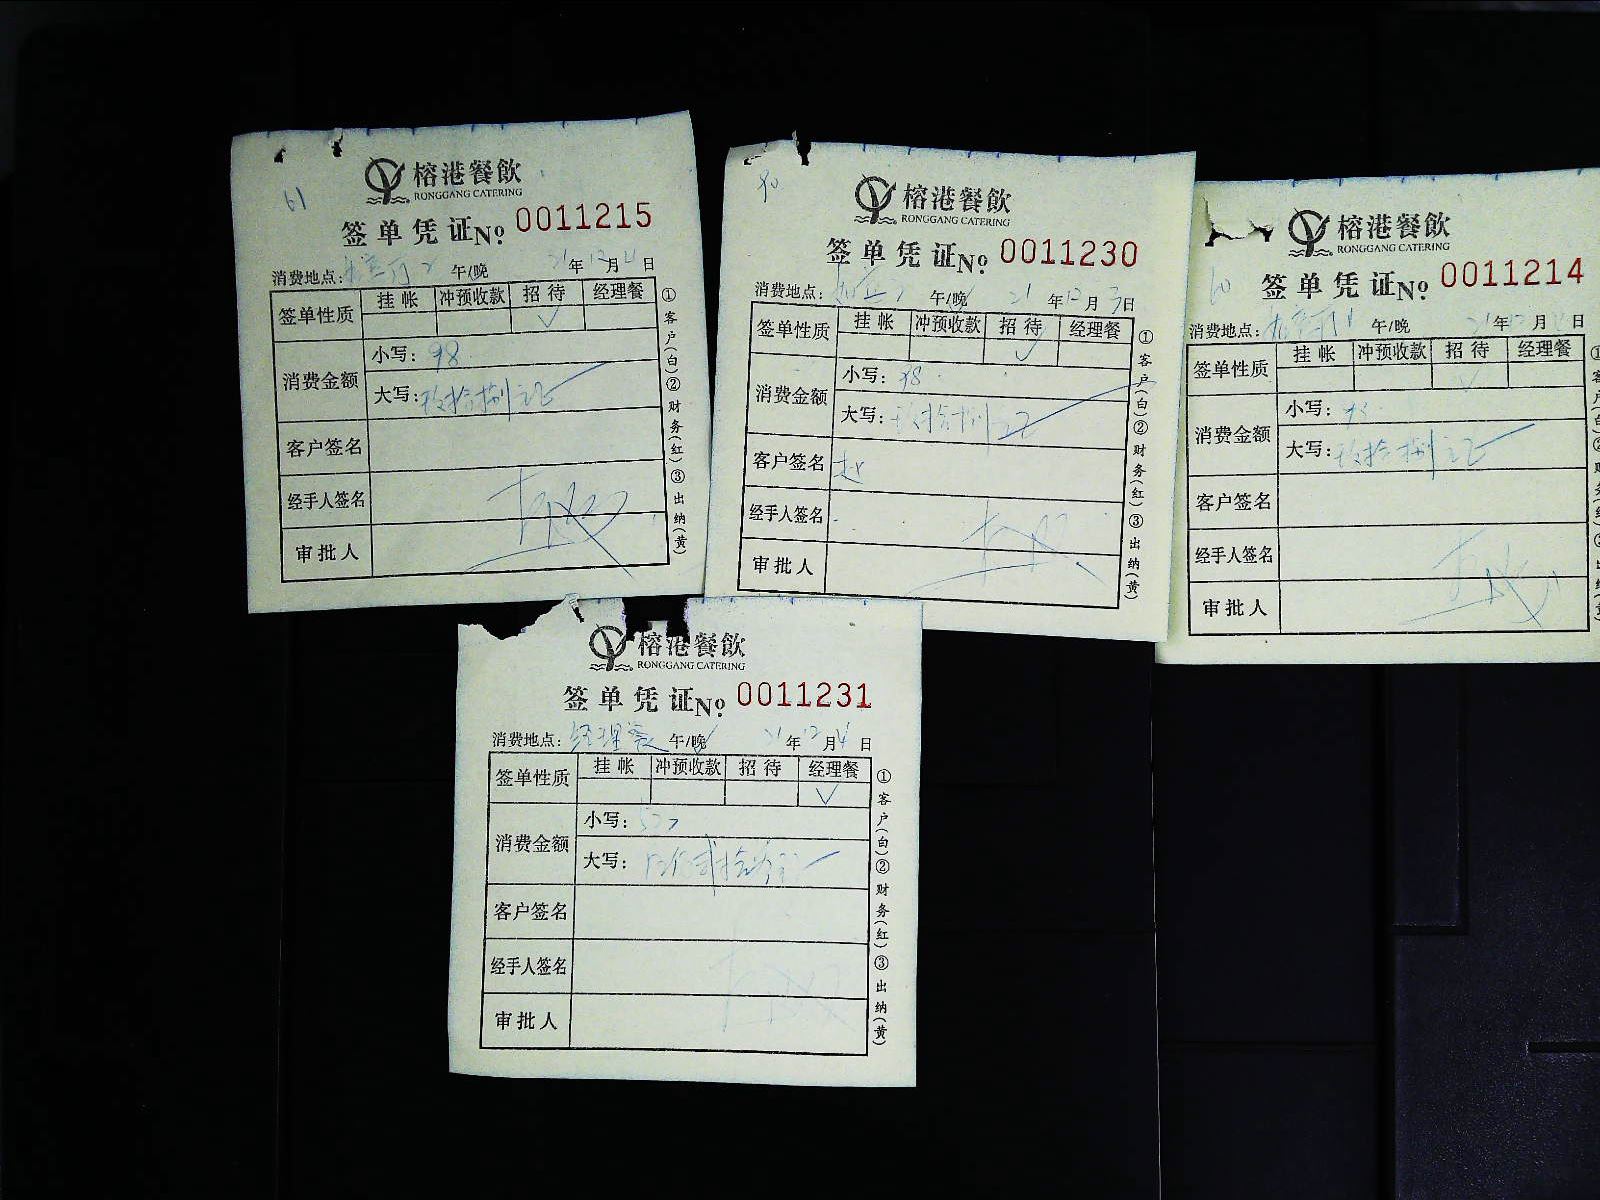 61
榕港餐飲
RONGGANG CATERING
签单凭证No. 0011215
消费地点: 午/晚 21年12月4日
签单性质 挂帐 冲预收款 招待 经理餐
✓
消费金额 小写: 98
大写: 玖拾捌元正
客户签名
经手人签名
审批人
①客户(白)②财务(红)③出纳(黄)
榕港餐飲
RONGGANG CATERING
签单凭证No. 0011230
消费地点: 午/晚 21年12月3日
签单性质 挂帐 冲预收款 招待 经理餐
✓
消费金额 小写: 98
大写: 玖拾捌元正
客户签名
经手人签名
审批人
①客户(白)②财务(红)③出纳(黄)
60
榕港餐飲
RONGGANG CATERING
签单凭证No. 0011214
消费地点: 午/晚 21年12月 日
签单性质 挂帐 冲预收款 招待 经理餐
✓
消费金额 小写: 98
大写: 玖拾捌元正
客户签名
经手人签名
审批人
榕港餐飲
RONGGANG CATERING
签单凭证No. 0011231
消费地点: 经理餐 午/晚 21年12月4日
签单性质 挂帐 冲预收款 招待 经理餐
✓
消费金额 小写: 527
大写:
客户签名
经手人签名
审批人
①客户(白)②财务(红)③出纳(黄)